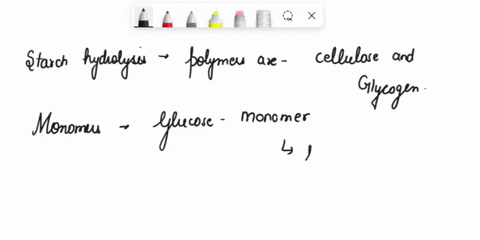 Starch hydrolysis → polymers are - cellulase and
Glycogen.
Monomers → Glucose - monomer
↳ ,